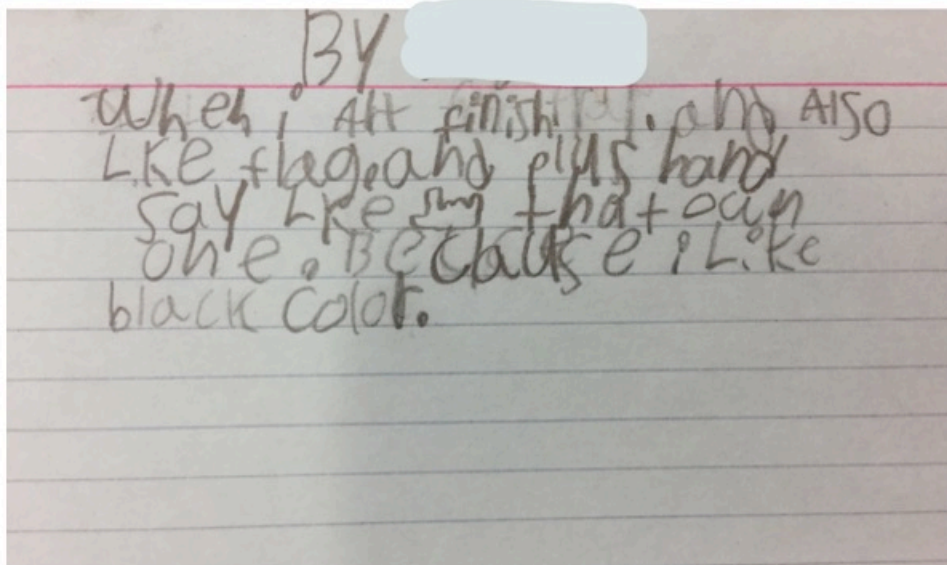 BY
When i Att finish. and Also
Like flag. and plus hand
Say Like that oan
one. Because i Like
black color.